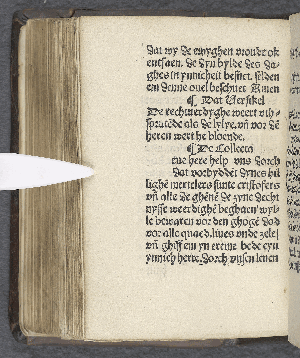 dat wy de ewyghen vroude ok
entfaen. de dyn bylde des da-
ghes in ynnicheit besut. selden
em denne ouel beschuet Amen
¶ Dat Versikel
De rechtuerdyghe wert vth-
sprutēde als de lylye. vn̄ vor dē
heren wert he bloende.
¶ De Collecta
ene here help vns dorch
dat vorbyddēt dynes hil
lighē mertelers sunte cristofers
vn̄ alle de ghēnē de syne decht
nysse werdighē beghaen wyl-
le bewaren vor den ghogē dod
vor alle quaed. liues vnde zele
vn̄ ghiff em yn erēme bede eyn
ynnich herte. dorch